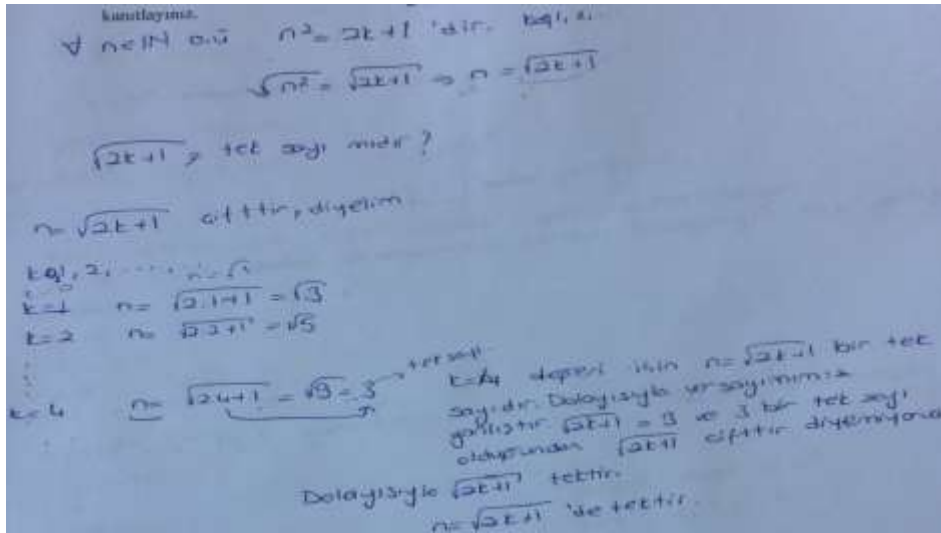 kanıtlayınız.
∀ n∈IN o.ü n² = 2k+1 'dir. k=0,1,2,
√n² = √2k+1 ⇒ n = √2k+1
√2k+1, tek sayı mıdır?
n= √2k+1 çifttir, diyelim
k=0,1,2, ..... n=√1
k=1 n= √2.1+1 = √3
k=2 n= √2.2+1 = √5
k=4 n= √2.4+1 = √9 = 3 → tek sayı
k=4 değeri için n=√2k+1 bir tek
sayıdır. Dolayısıyla varsayımımız
yanlıştır √2k+1 = 3 ve 3 bir tek sayı
olduğundan √2k+1 çifttir diyemiyoruz
Dolayısıyla √2k+1 tektir.
n=√2k+1 'de tektir.